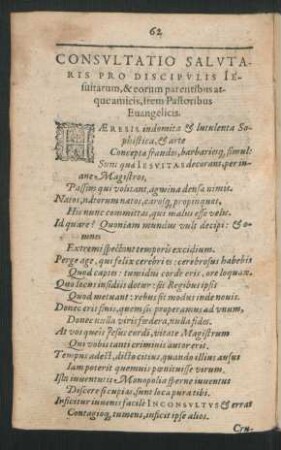 62
CONSVLTATIO SALVTA-
RIS PRO DISCIPVLIS IE-
suitarum, & eorum parentibus at-
que amicis, item Pastoribus
Euangelicis.
HÆRESIS indomita & luculenta So-
phistica, & arte
Concepta fraudis, barbarieq, simul:
Sunt qua IESVITAS decorant, per in-
anes Magistros,
Passim qui volitant, agmina densa nimis.
Natos, natorum natos, carosq, propinquos,
His nunc committas, qui malus esse velis.
Id quare? Quoniam mundus vult decipi: &
omnes
Extremi spectant temporis excidium.
Perge age, qui felix cerebri es: cerebrosus habebis
Quod captes: tumidus corde eris, ore loquax.
Quo locus insidiis detur: sit Regibus ipsis
Quod metuant: rebus sit modus inde nouis.
Donec eris sinus, quem sic properamus ad vnum,
Donec nulla viris foedera, nulla fides.
At vos queis Iesus cordi, vitate Magistrum
Qui vobis tanti criminis autor erit.
Tempus adest, dicto citius, quando illius ausus
Iam poterit quemuis poenituisse virum.
Ista inuentutis Monopolia sperne iuuentus
Discere si cupias, sunt loca pura tibi.
Inficitur iuuenis facilè INCONSVLTVS & errat
Contagioq, tumens, inficit ipse alios.
Cru-